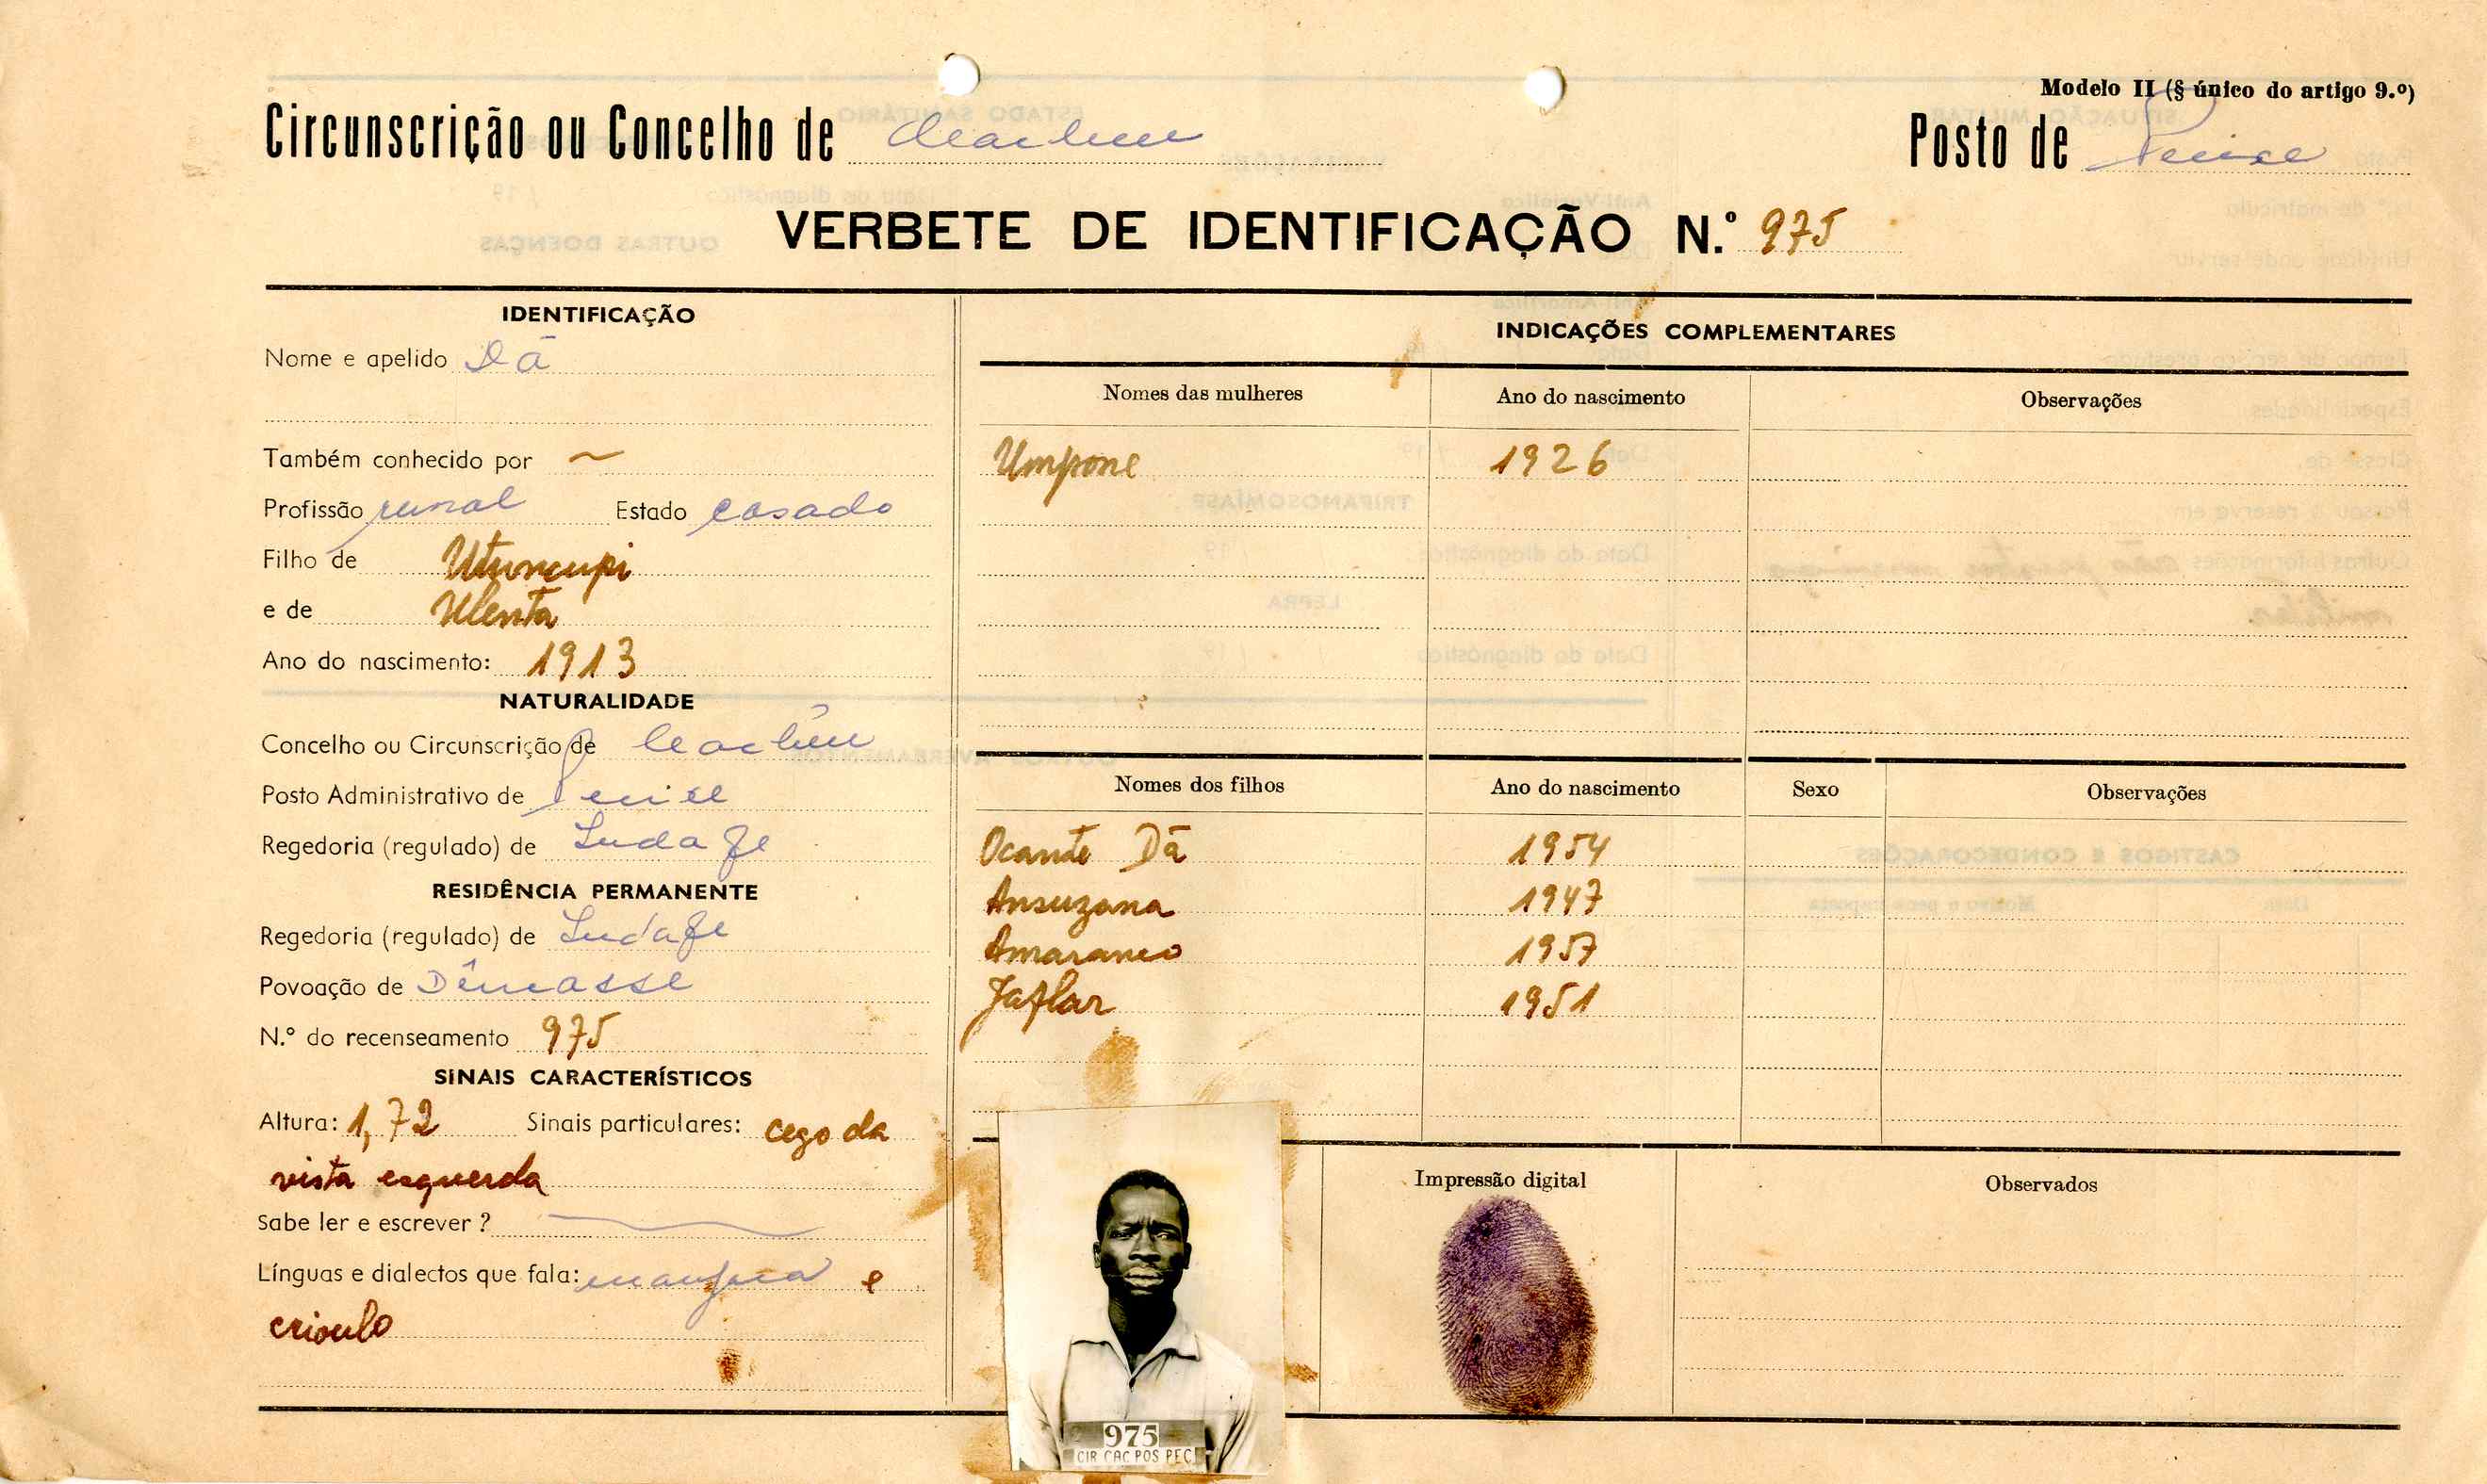 Modelo II (§ único do artigo 9.º)
Circunscrição ou Concelho de Cacheu Posto de
VERBETE DE IDENTIFICAÇÃO N.º 975
IDENTIFICAÇÃO
Nome e apelido Dã
Também conhecido por ~
Profissão rural Estado casado
Filho de
e de Ulenta
Ano do nascimento: 1913
NATURALIDADE
Concelho ou Circunscrição de Cacheu
Posto Administrativo de
Regedoria (regulado) de
RESIDÊNCIA PERMANENTE
Regedoria (regulado) de
Povoação de
N.º do recenseamento 975
SINAIS CARACTERÍSTICOS
Altura: 1,72 Sinais particulares: cego da
vista esquerda
Sabe ler e escrever ?
Línguas e dialectos que fala: e
crioulo
INDICAÇÕES COMPLEMENTARES
Nomes das mulheres Ano do nascimento Observações
Umpone 1926
Nomes dos filhos Ano do nascimento Sexo Observações
Ocante Dã 1954
Ansuzana 1947
1957
Jaflar 1951
Impressão digital Observados
975
CIR CAC POS PEC